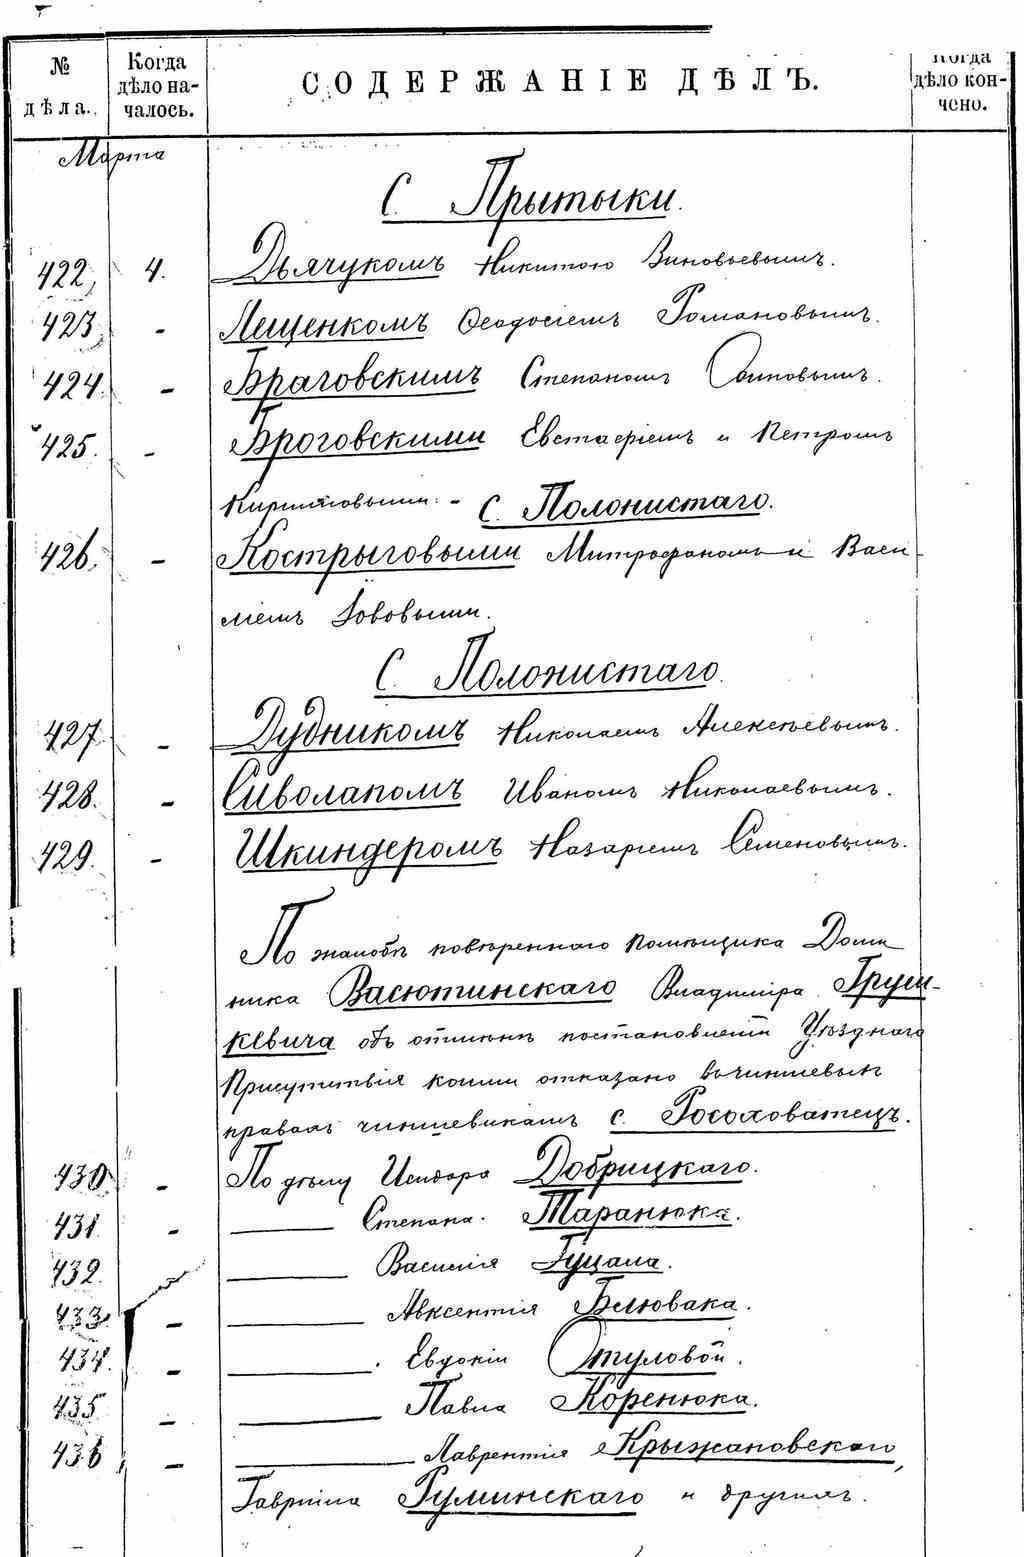 № дѣла.
Когда дѣло началось.
СОДЕРЖАНІЕ ДѢЛЪ.
Когда дѣло кончено.
Марта
С. Прытыки.
422. 4. Дьячукомъ Никитою Зиновьевымъ.
423. - Лещенкомъ Ѳеодосіемъ Романовымъ.
424. - Браговскимъ Степаномъ
425. - Броговскими Евстафіемъ и Петромъ
Кирилловыми. - С. Полонистаго.
426. - Кострыговыми Митрофаномъ и Васи-
ліемъ Іововыми.
С. Полонистаго.
427. - Дудникомъ Николаемъ Алексѣевымъ.
428. - Сиволапомъ Иваномъ Николаевымъ.
429. - Шкиндеромъ Назаріемъ Семеновымъ.
По жалобѣ повѣреннаго помѣщика Доми
ника Васютинскаго Владиміра Груш-
кевича объ отмѣнѣ постановленій Уѣзднаго
Присутствія коими отказано въ чиншевыхъ
правахъ чиншевикамъ с. Росоховатецъ.
430. - По дѣлу Исидора Добрицкаго.
431. - Степана. Таранюка.
432. Василія Гуцала.
433. - Авксентія Белювака.
434. - Евдокіи Отуловой.
435 - Павла Коренюка.
436 - Лаврентія Крыжановскаго,
Гавріила Руминскаго и другихъ.